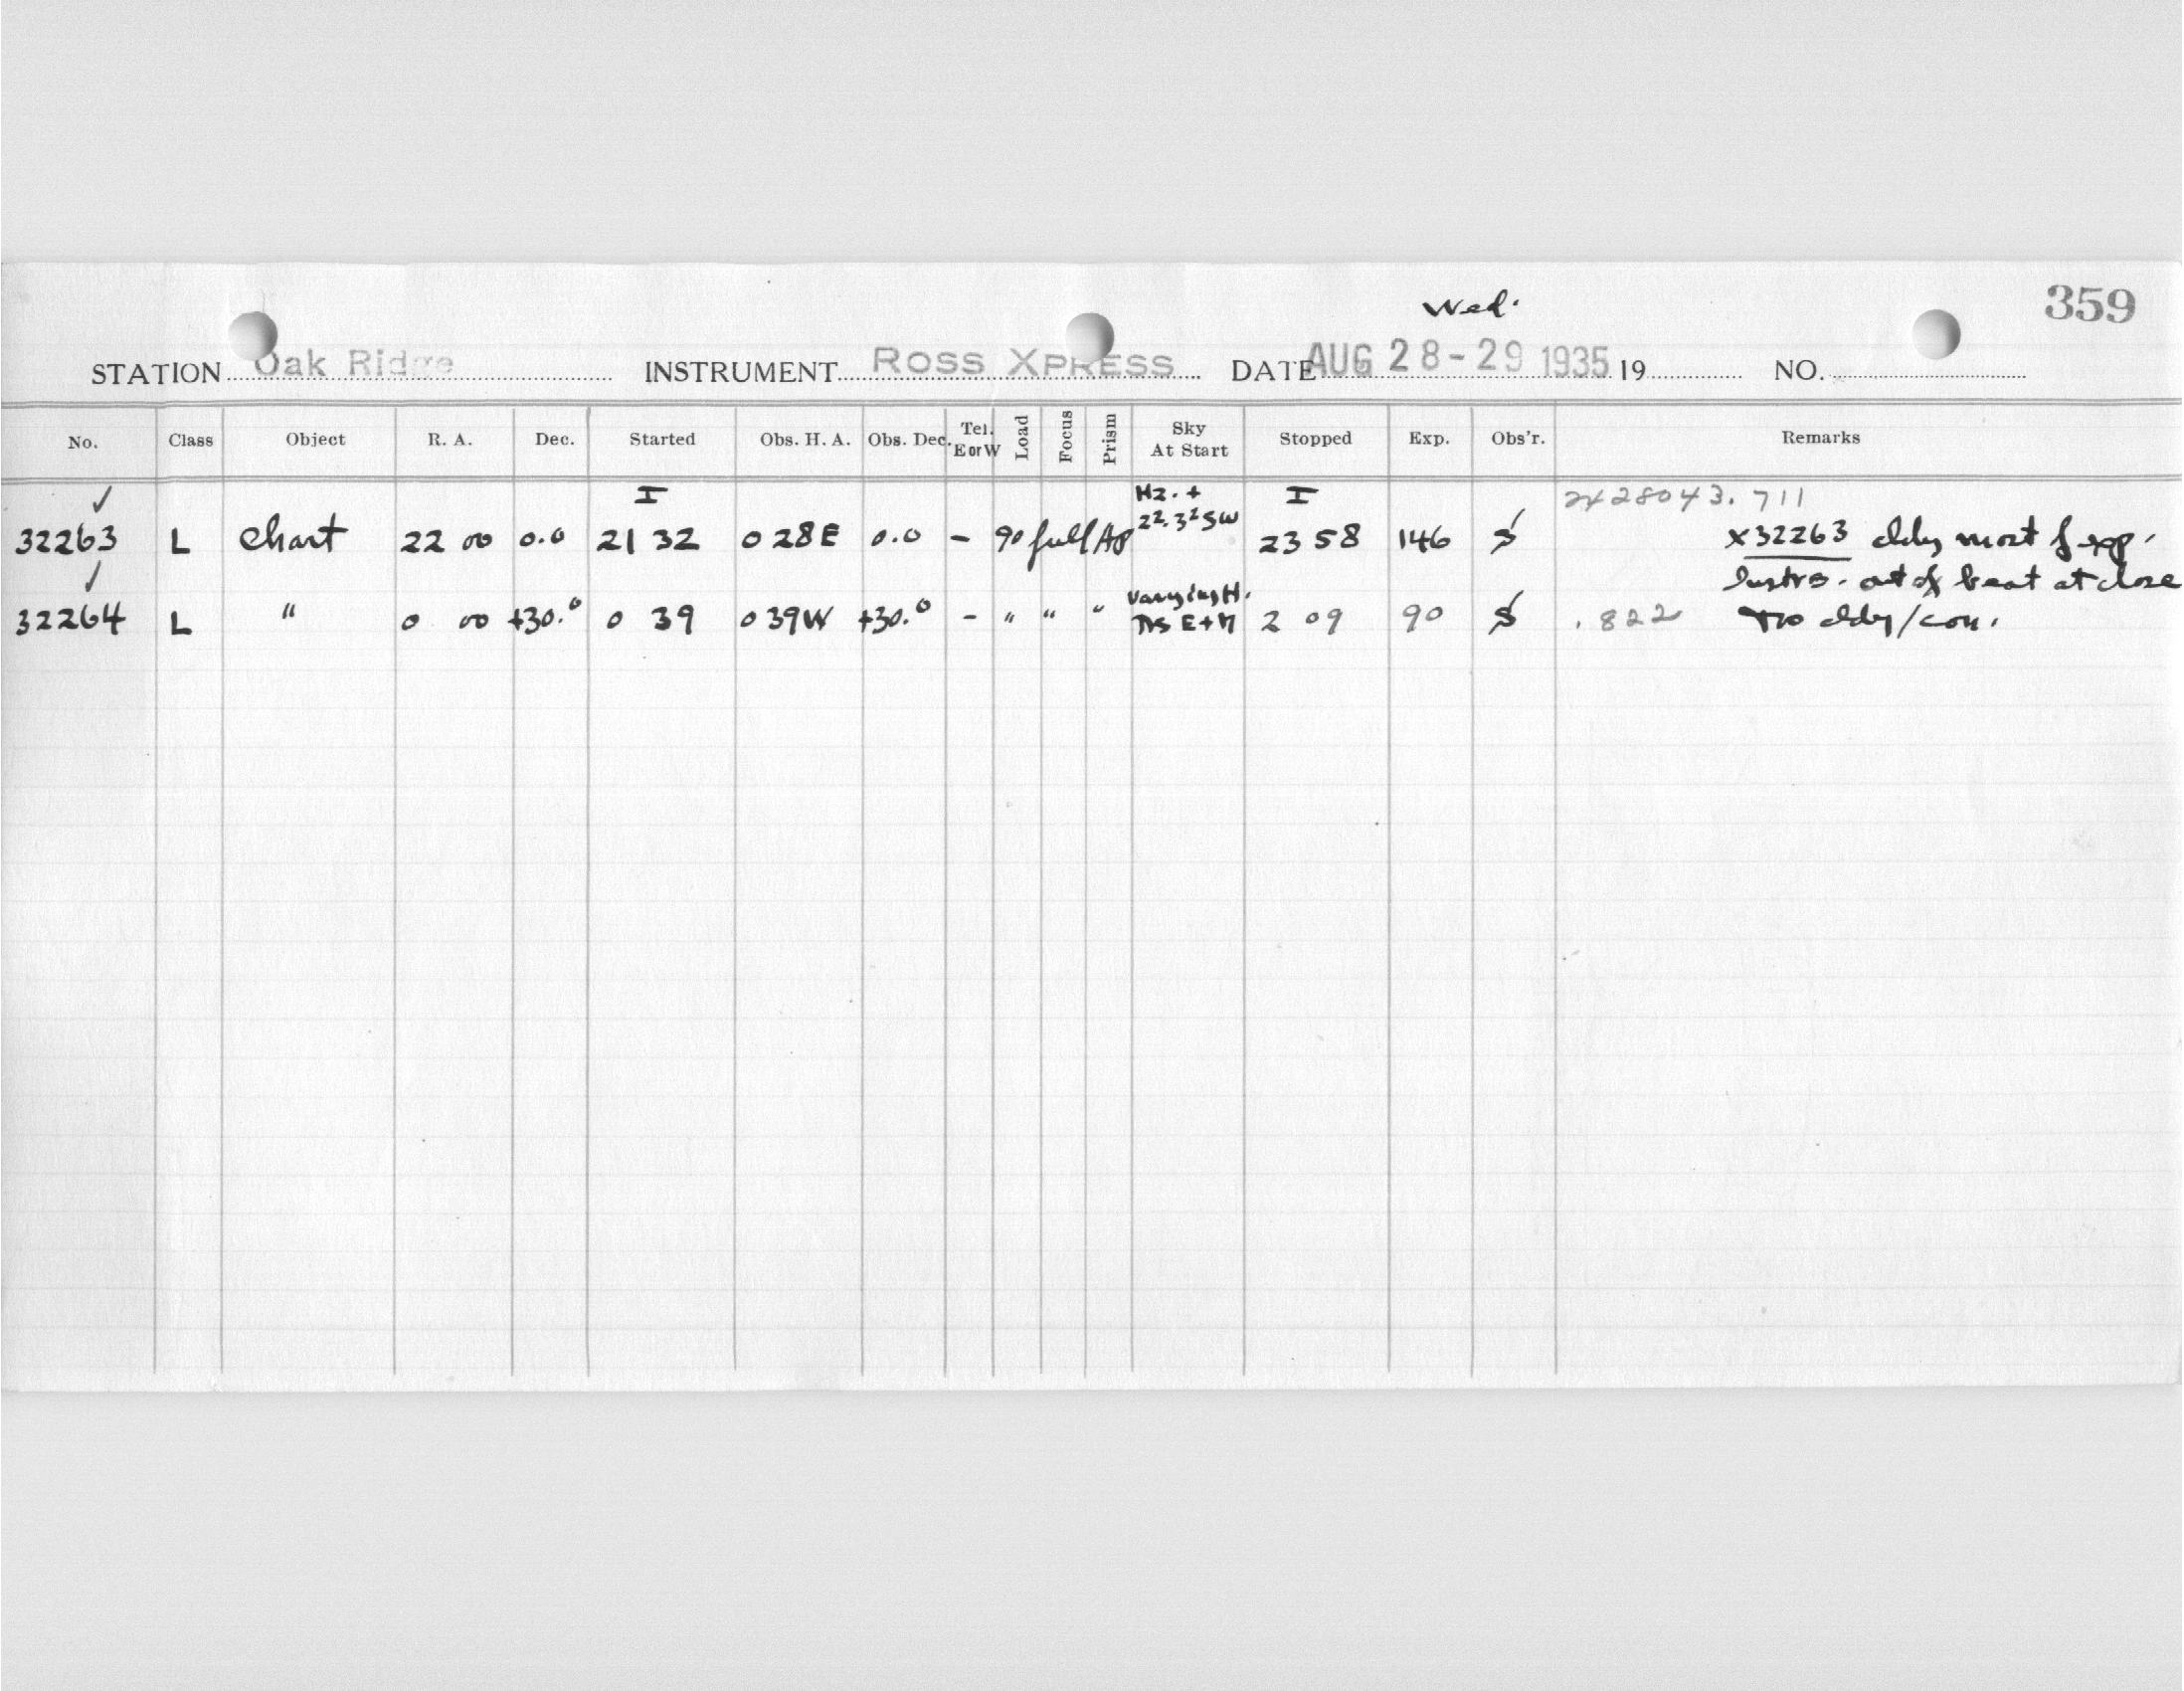 Wed.
359
STATION Oak Ridge INSTRUMENT ROSS XPRESS DATE AUG 28-29 1935 19 NO.
No. Class Object R. A. Dec. Started Obs. H. A. Obs. Dec. Tel. E or W Load Focus Prism Sky At Start Stopped Exp. Obs'r. Remarks
✓ I Hz. + I 2428043.711
32263 L Chart 22 00 0.0 21 32 0 28E 0.0 - 90 full Ap 22.3² SW 23 58 146 S X32263 cldy most of exp.
✓ Instrs. out of beat at close
32264 L " 0 00 +30.0 0 39 0 39W +30.0 - " " " Varying H. E+N 2 09 90 S .822 No cldy/con.